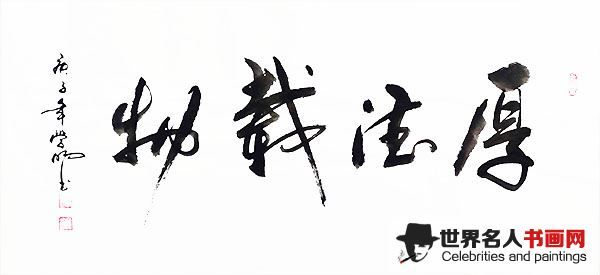 厚德载物
庚子年学明书
世界名人书画网
Celebrities and paintings